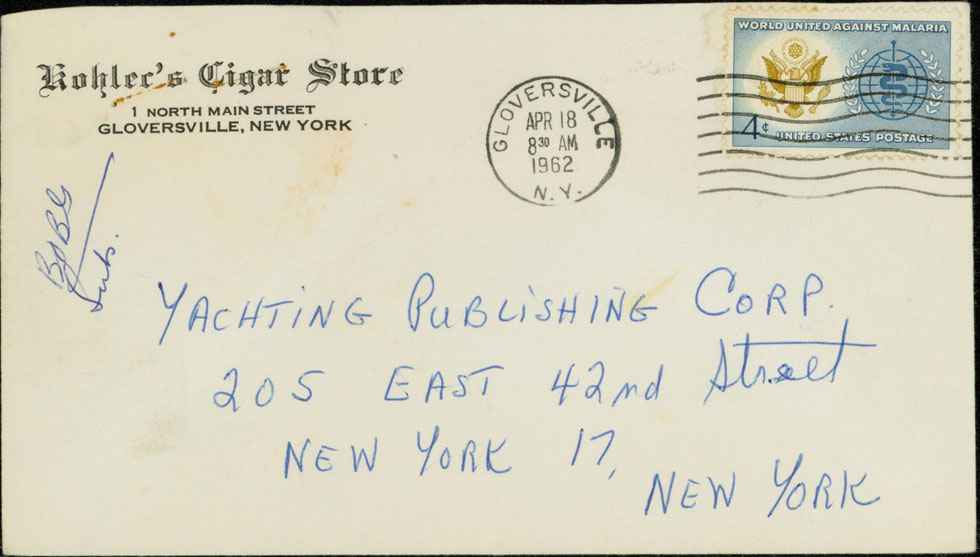 Kohler's Cigar Store
1 NORTH MAIN STREET
GLOVERSVILLE, NEW YORK
GLOVERSVILLE
APR 18
8 30 AM
1962
N. Y.
WORLD UNITED AGAINST MALARIA
4¢
UNITED STATES POSTAGE
YACHTING PUBLISHING CORP.
205 EAST 42nd Street
NEW YORK 17,
NEW YORK